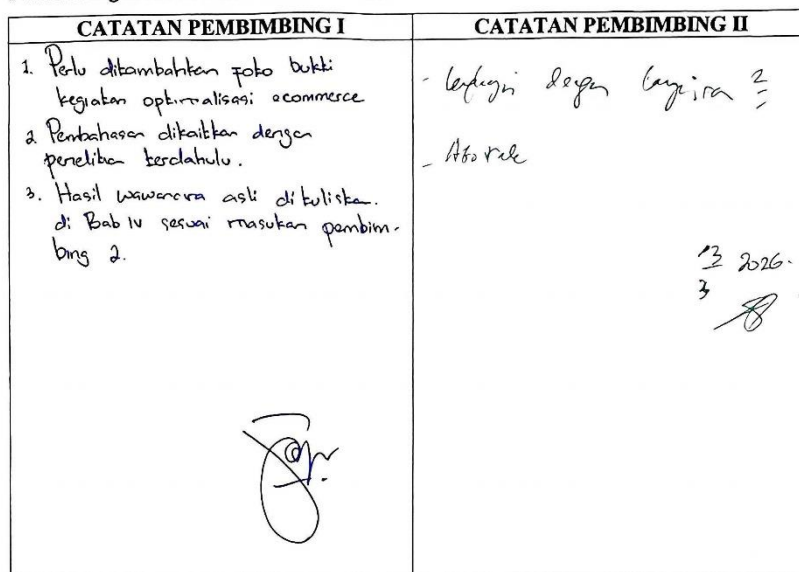 CATATAN PEMBIMBING I
1. Perlu ditambahkan foto bukti
kegiatan optimalisasi ecommerce
2. Pembahasan dikaitkan dengan
penelitian terdahulu.
3. Hasil wawancara asli dituliskan
di Bab IV sesuai masukan pembim-
bing 2.
CATATAN PEMBIMBING II
- lengkapi dengan lampiran 2
- Abstrak
13 2026.
3